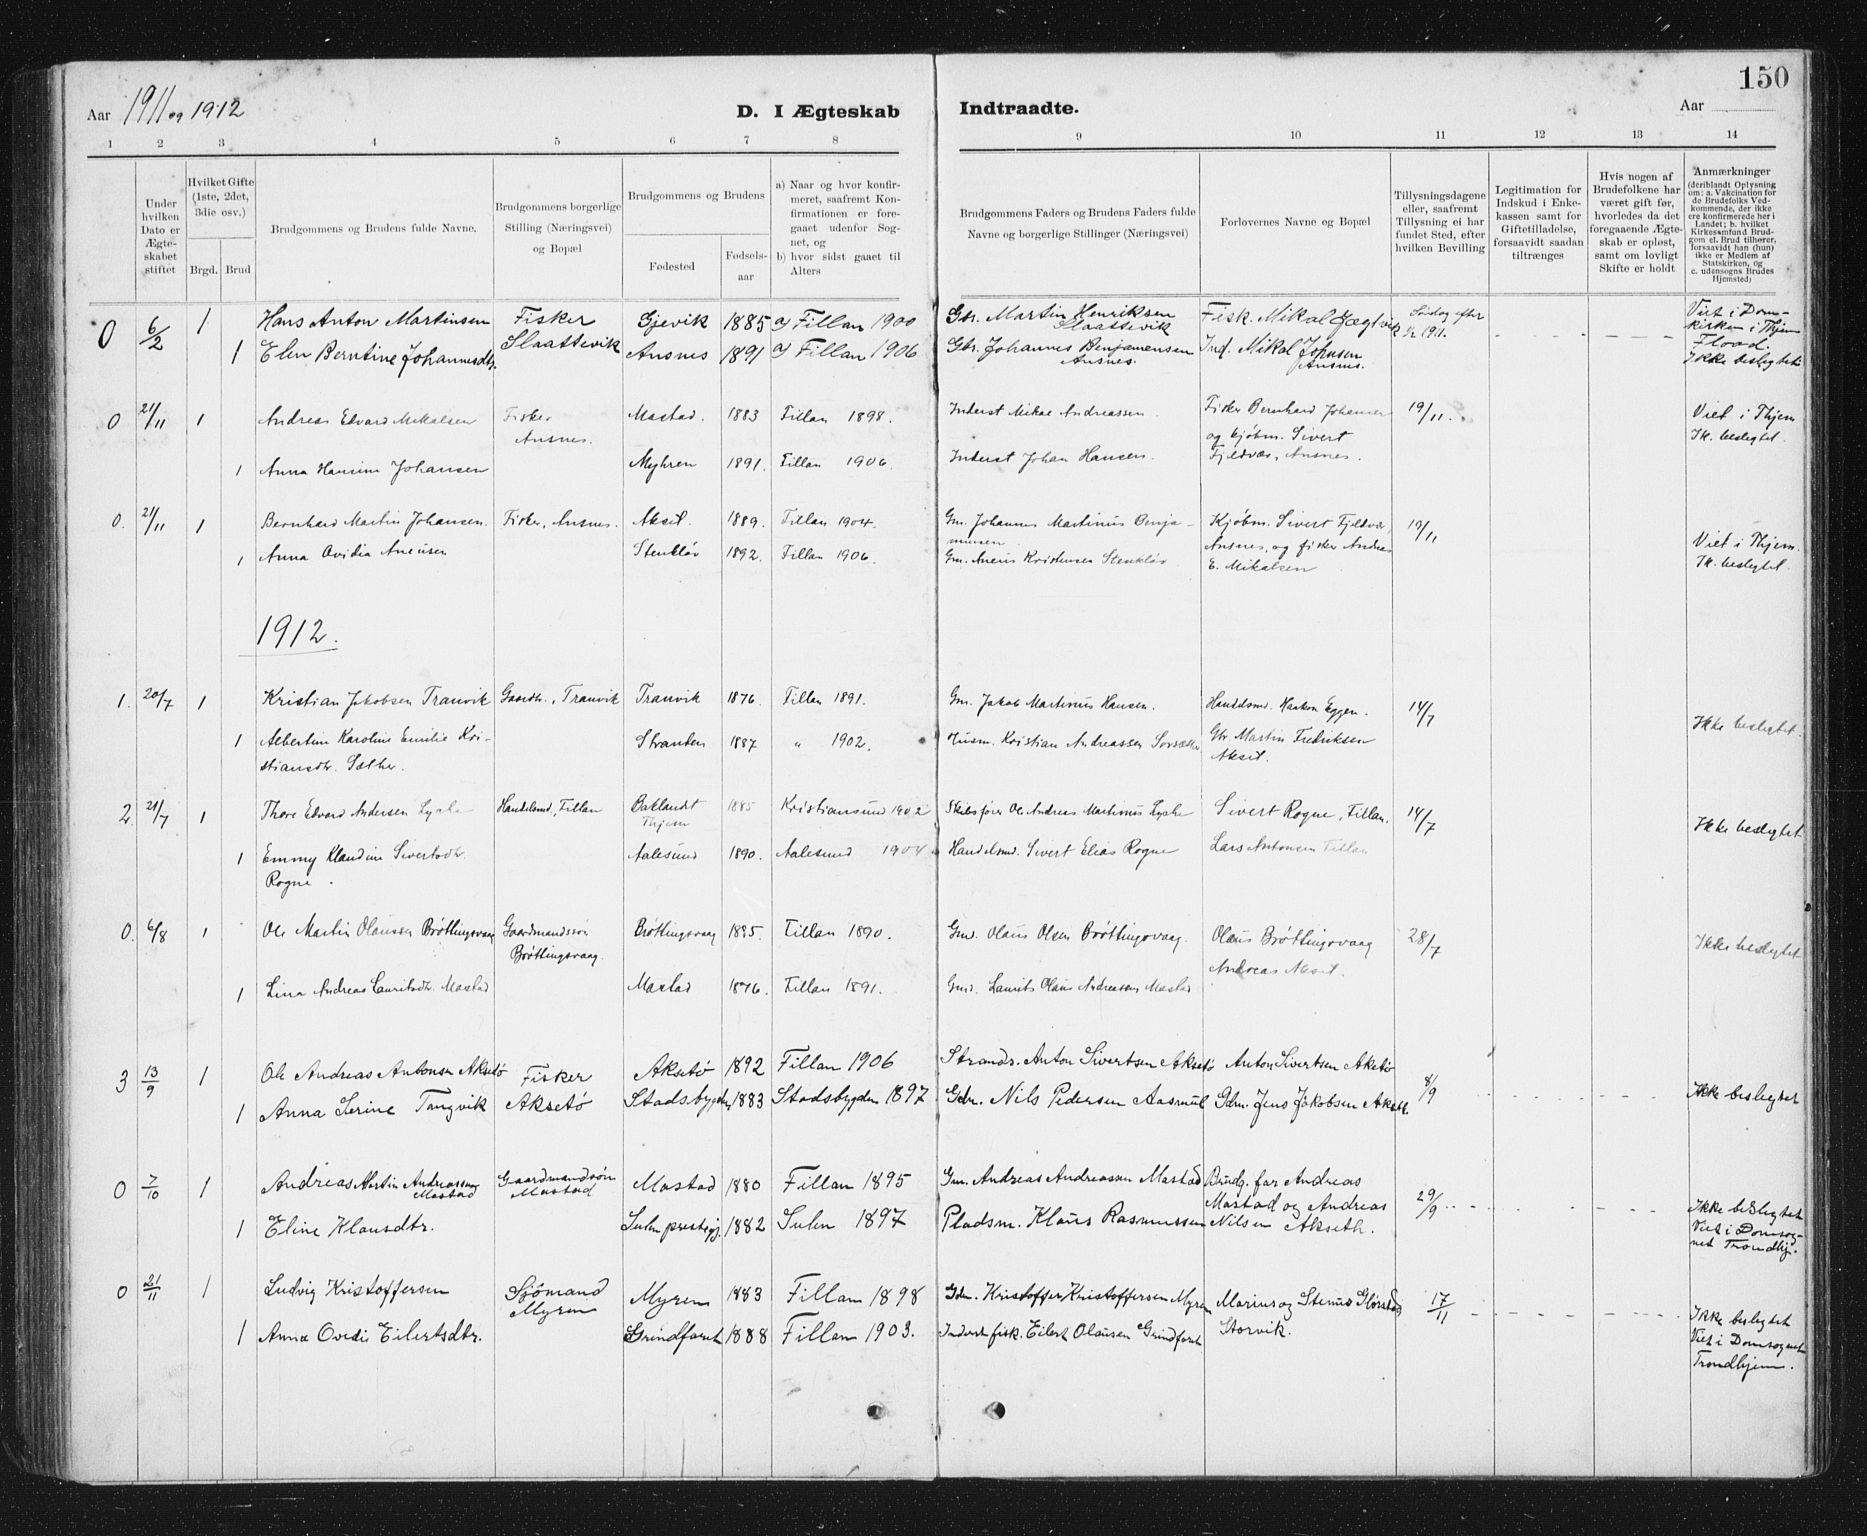 150
Aar 1911 og 1912
D. I Ægteskab Indtraadte.
Aar
1 2 3 4 5 6 7 8 9 10 11 12 13 14
Under hvilken Dato er Ægteskabet stiftet
Hvilket Gifte (1ste, 2det, 3die osv.)
Brgd. Brud
Brudgommens og Brudens fulde Navne.
Brudgommens borgerlige Stilling (Næringsvei) og Bopæl
Brudgommens og Brudens
Fødested
Fødsels-aar
a) Naar og hvor konfirmeret, saafremt Konfirmationen er foregaaet udenfor Sognet, og
b) hvor sidst gaaet til Alters
Brudgommens Faders og Brudens Faders fulde Navne og borgerlige Stillinger (Næringsvei)
Forlovernes Navne og Bopæl
Tillysningsdagene eller, saafremt Tillysning ei har fundet Sted, efter hvilken Bevilling
Legitimation for Indskud i Enkekassen samt for Giftetilladelse, forsaavidt saadan tiltrænges
Hvis nogen af Brudefolkene har været gift før, hvorledes da det foregaaende Ægteskab er opløst, samt om lovligt Skifte er holdt
Anmærkninger
(deriblandt Oplysning om: a. Vakcination for de Brudefolks Vedkommende, der ikke ere konfirmerede her i Landet; b. hvilket Kirkesamfund Brudgom el. Brud tilhører, forsaavidt han (hun) ikke er Medlem af Statskirken, og c. udensogns Brudes Hjemsted)
0 6/2 1 Hans Anton Martinsen Fisker Slaattevik Gjevik 1885 a) Fillan 1900 Gbr. Martin Henriksen Slaattevik Fisk. Mikal Jægtvik 1911. Viet i Domkirken i Thjem
1 Elen Berntine Johannesdtr. Ansnes 1891 a) Fillan 1906 Gbr. Johannes Benjamensen Ansnes. Ind. Mikal Johnsen Ansnes. Ikke beslegtet
0 21/11 1 Andreas Edvard Mikalsen Fisker Ansnes. Mastad. 1883 Fillan 1898. Inderst Mikal Andreassen Fisker Bernhard Johansen og kjøbm. Sivert Fjeldvær, Ansnes. 19/11. Viet i Thjem
1 Anna Hansine Johansen Myhren 1891. Fillan 1906. Inderst Johan Hansen. Ik. beslegtet.
0. 21/11 1 Bernhard Martin Johansen. Fisker, Ansnes. Aksit. 1889. Fillan 1904. Gm. Johannes Martinus Benjaminsen Kjøbm. Sivert Fjeldvær, Ansnes, og fisker Andreas E. Mikalsen 19/11 Viet i Thjem.
1 Anna Ovidia Aneusen Stenkløv 1892. Fillan 1906. Gm. Aneus Kristensen Stenkløv Ik. beslegtet.
1912.
1. 20/7 1 Kristian Jakobsen Tranvik Gaardbr., Tranvik Tranvik 1876. Fillan 1891. Gm. Jakob Martinus Hansen. Handelsmd. Haakon Eggen. 14/7
1 Albertine Karoline Emilie Kristiansdtr. Sæther. Stranden 1887 " 1902. Husm. Kristian Andreassen Gbr Martin Fredriksen Aksit. Ikke beslegtet.
2. 21/7 1 Thore Edvard Andersen Lysø Handelsmd, Fillan Baklandet Thjem 1885 Kristiansund 1902 Skibsfører Ole Andreas Martinus Sivert Rogne, Fillan. 14/7
1 Emmy Klandine Sivertsdtr. Rogne. Aalesund 1890. Aalesund 1904 Handelsmd. Sivert Elias Rogne Lars Antonsen Fillan Ikke beslegtet
0. 6/8 1 Ole Martin Olaussen Brøttingsvaag Gaardmandssøn Brøttingsvaag. Brøttingsvaag Fillan 1890. Gmd. Olaus Olsen Brøttingsvaag. Olaus Brøttingsvaag 28/7
1 Lina Andreas Lauritsdtr. Mastad Mastad 1876. Fillan 1891. Gmd. Laurits Olaus Andreassen Mastad Andreas Aksit. Ikke beslegtet
3 13/9 1 Ole Andreas Antonsen Aksetø Fisker Aksetø Aksetø 1892 Fillan 1906 Strands. Anton Sivertsen Aksetø Anton Sivertsen Aksetø 8/9
1 Anna Serine Tangvik Stadsbygden 1883 Stadsbygden 1897 Gdm. Nils Pedersen Aasmul Gdm. Jens Jakobsen Akset. Ikke beslegtet
0 7/10 1 Andreas Martin Andreassen Mastad Gaardmandsøn Mastad Mastad 1880 Fillan 1895 Gm. Andreas Andreassen Mastad Brudg. far Andreas Mastad og Andreas Nilsen Akseth. 29/9
1 Eline Klausdtr. Suln prestegj. 1882 Suln 1897 Pladsm. Klaus Rasmussen Ikke beslegtet Viet i Domsognet Trondhj.
0 21/11 1 Ludvig Kristoffersen Sjömand Myren Myren 1883 Fillan 1898 Gdm. Kristoffer Kristoffersen Myren Marius og Sterius Glørstad Storvik. 17/11
1 Anna Ovedie Eilertsdtr. Grindfaret 1888 Fillan 1903. Inderst fisk. Eilert Olausen Grindfaret Ikke beslegtet Viet i Domsognet Trondhjem.